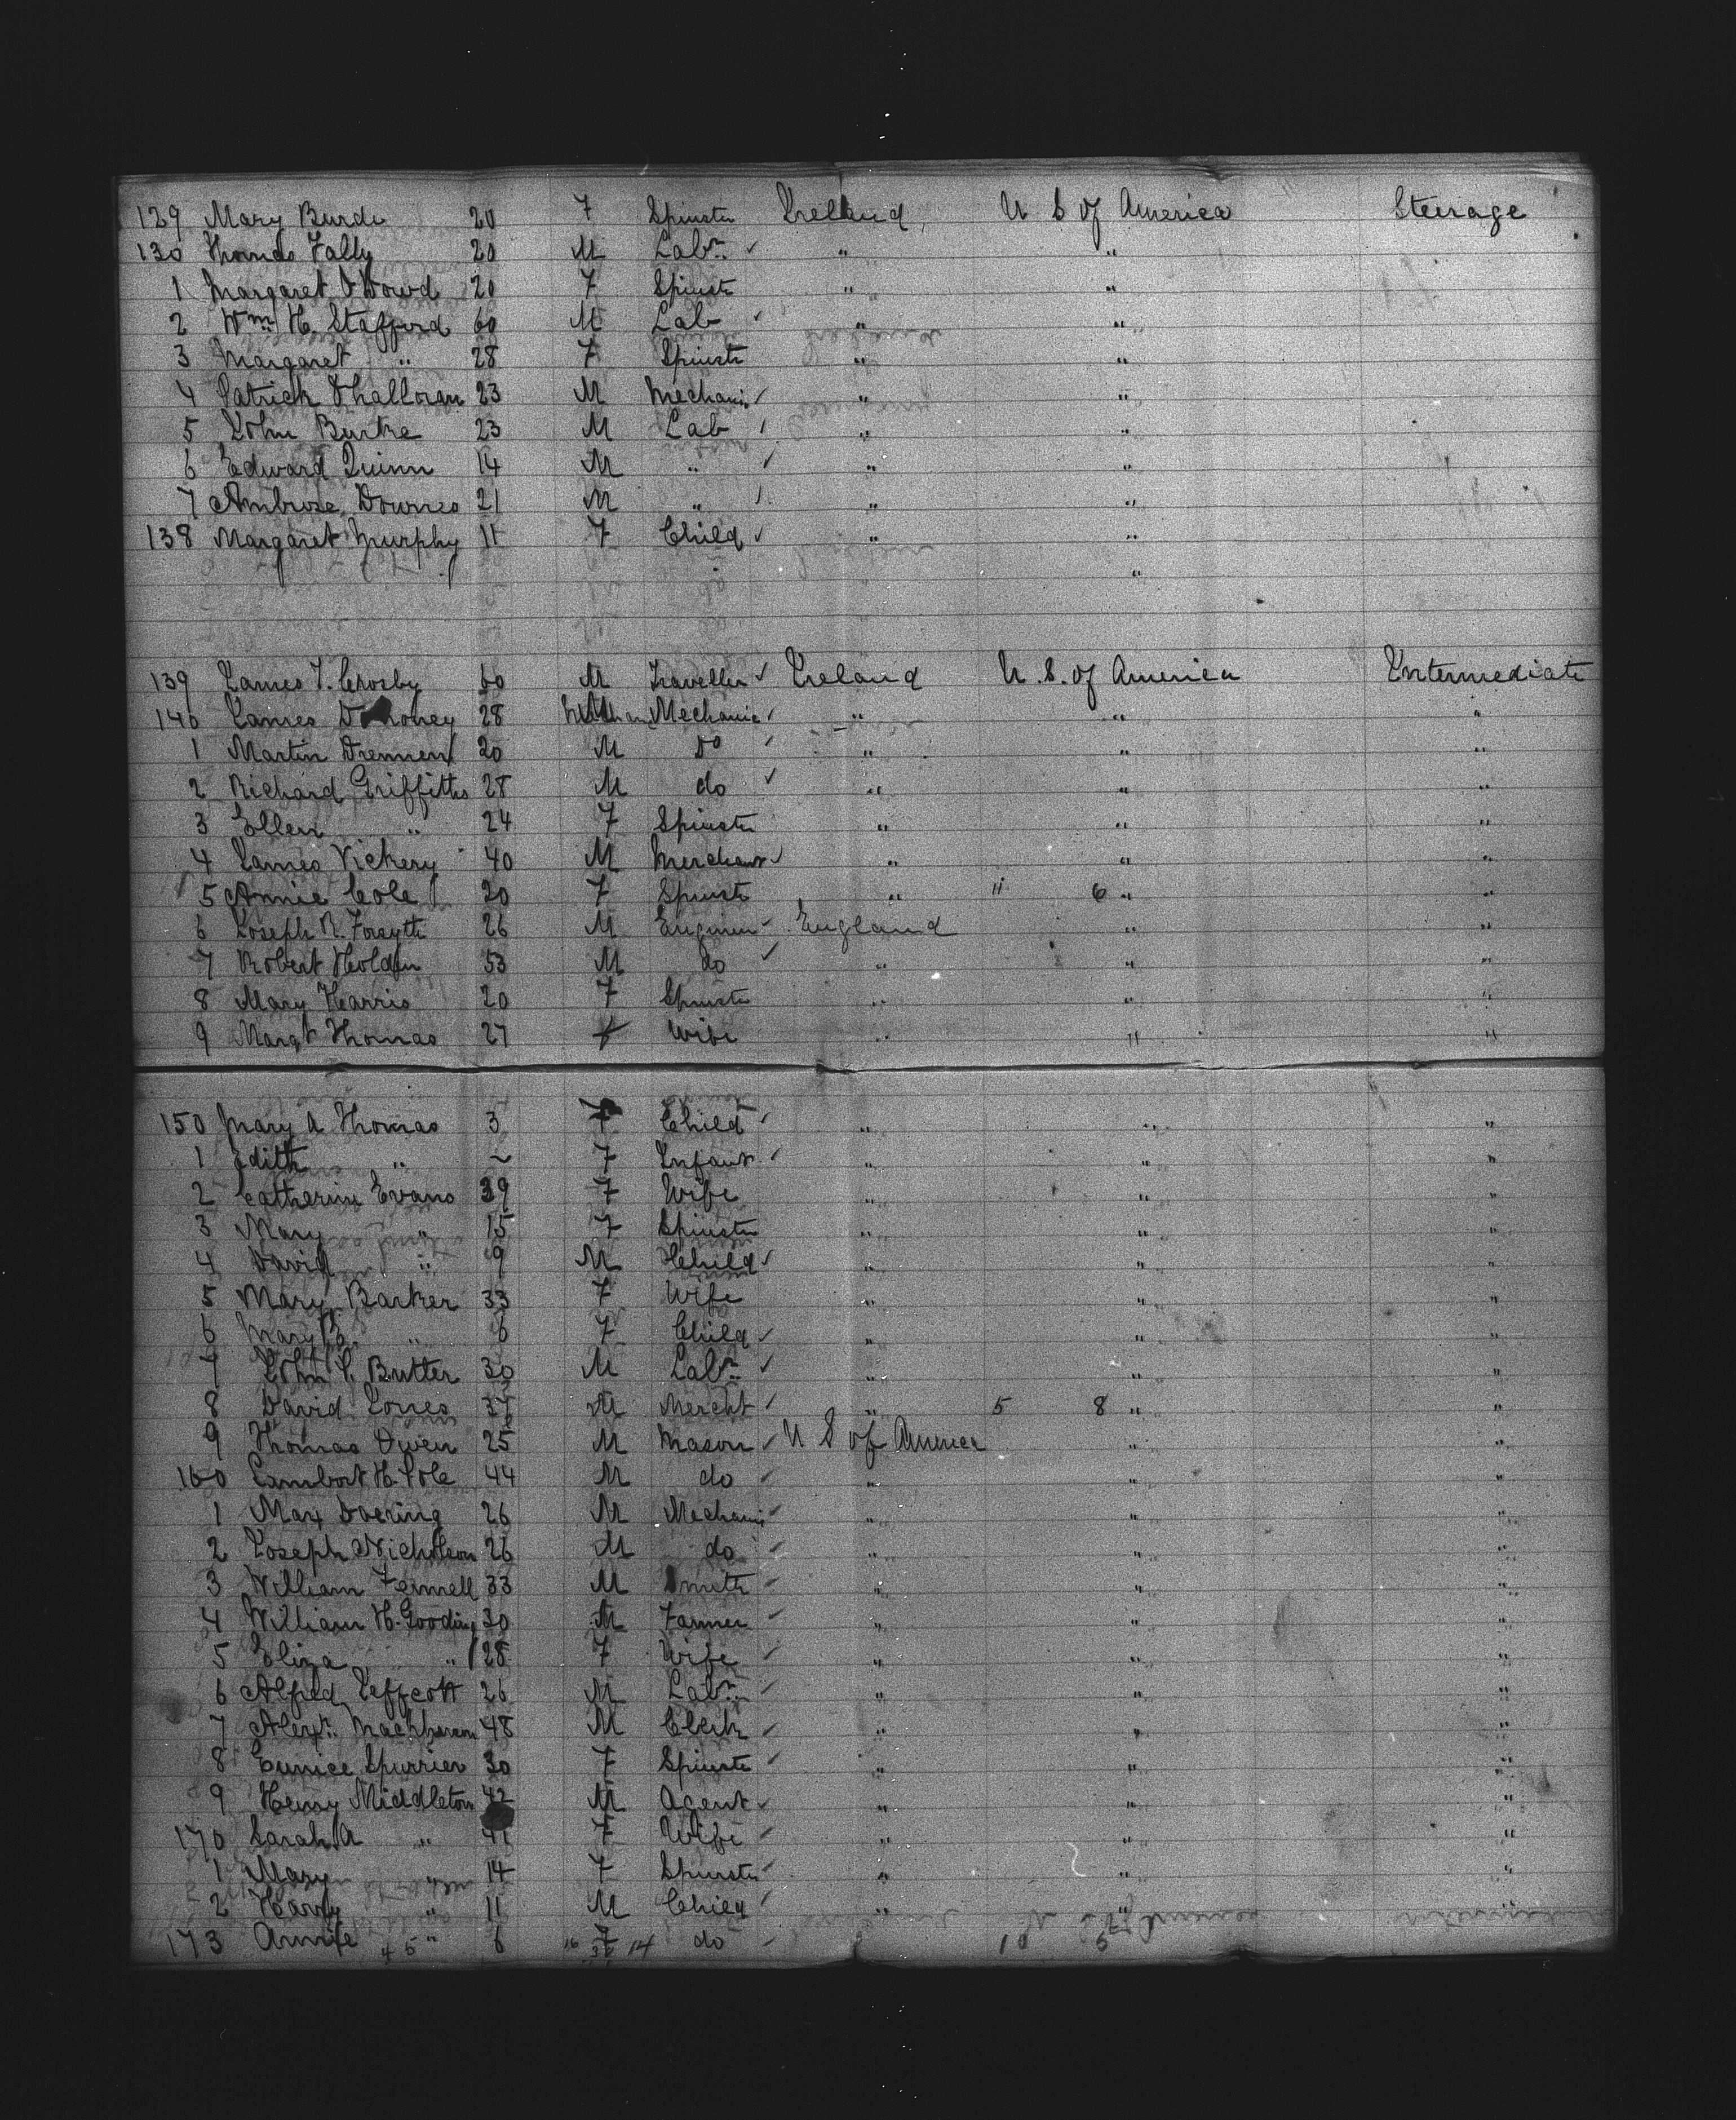 129 Mary Burde 20 F Spinster Ireland U S of America Steerage
130 Thomas Fally 20 M Labr. " "
1 Margaret O'Dowd 20 F Spinste " "
2 Wm. H. Stafford 60 M Lab " "
3 Margaret " 28 F Spinste " "
4 Patrick O'Halloran 23 M Mechani " "
5 John Burke 23 M Lab " "
6 Edward Quinn 14 M " " "
7 Ambrose Downes 21 M " " "
138 Margaret Murphy 11 F Child " "
"
139 James T. Crosby 60 M Traveller Ireland U. S. of America Intermediate
140 James 28 M Mechanic " " "
1 Martin Drennen 20 M Do " " "
2 Richard Griffiths 28 M do " " "
3 Ellen " 24 F Spinster " " "
4 James Vickery 40 M Merchant " " "
5 Annie Cole 20 F Spinste " " 6 " "
6 Joseph R. Forsyth 26 M Engineer England " "
7 Robert Holden 53 M do " " "
8 Mary Harris 20 F Spinste " " "
9 Margt Thomas 27 f Wife " " "
150 Mary A Thomas 3 F Child " " "
1 Edith " ~ F Infant " " "
2 Catherine Evans 39 F Wife " " "
3 Mary " 15 F Spinster " " "
4 David " 9 M Child " " "
5 Mary Barker 33 F Wife " " "
6 Mary " 6 F Child " " "
7 John Butter 30 M Labr. " " "
8 David Jones 37 M Mercht " 5 8 " "
9 Thomas Owen 25 M Mason U S of America " "
160 Lambert H. Pole 44 M do " " "
1 Max Doering 26 M Mechani " " "
2 Joseph Nicholson 26 M do " " "
3 William Fennell 33 M Smith " " "
4 William H. Gooding 30 M Farmer " " "
5 Eliza " 28 F Wife " " "
6 Alfred Jeffcott 26 M Labr. " " "
7 Alexr. Macpherson 48 M Clerk " " "
8 Eunice Spurrier 30 F Spinste " " "
9 Henry Middleton 42 M Agent " " "
170 Sarah A " 41 F Wife " " "
1 Mary " 14 F Spinster " " "
2 Harry " 11 M Child " " "
173 Annie 4 5 " 6 16 F 14 do 10